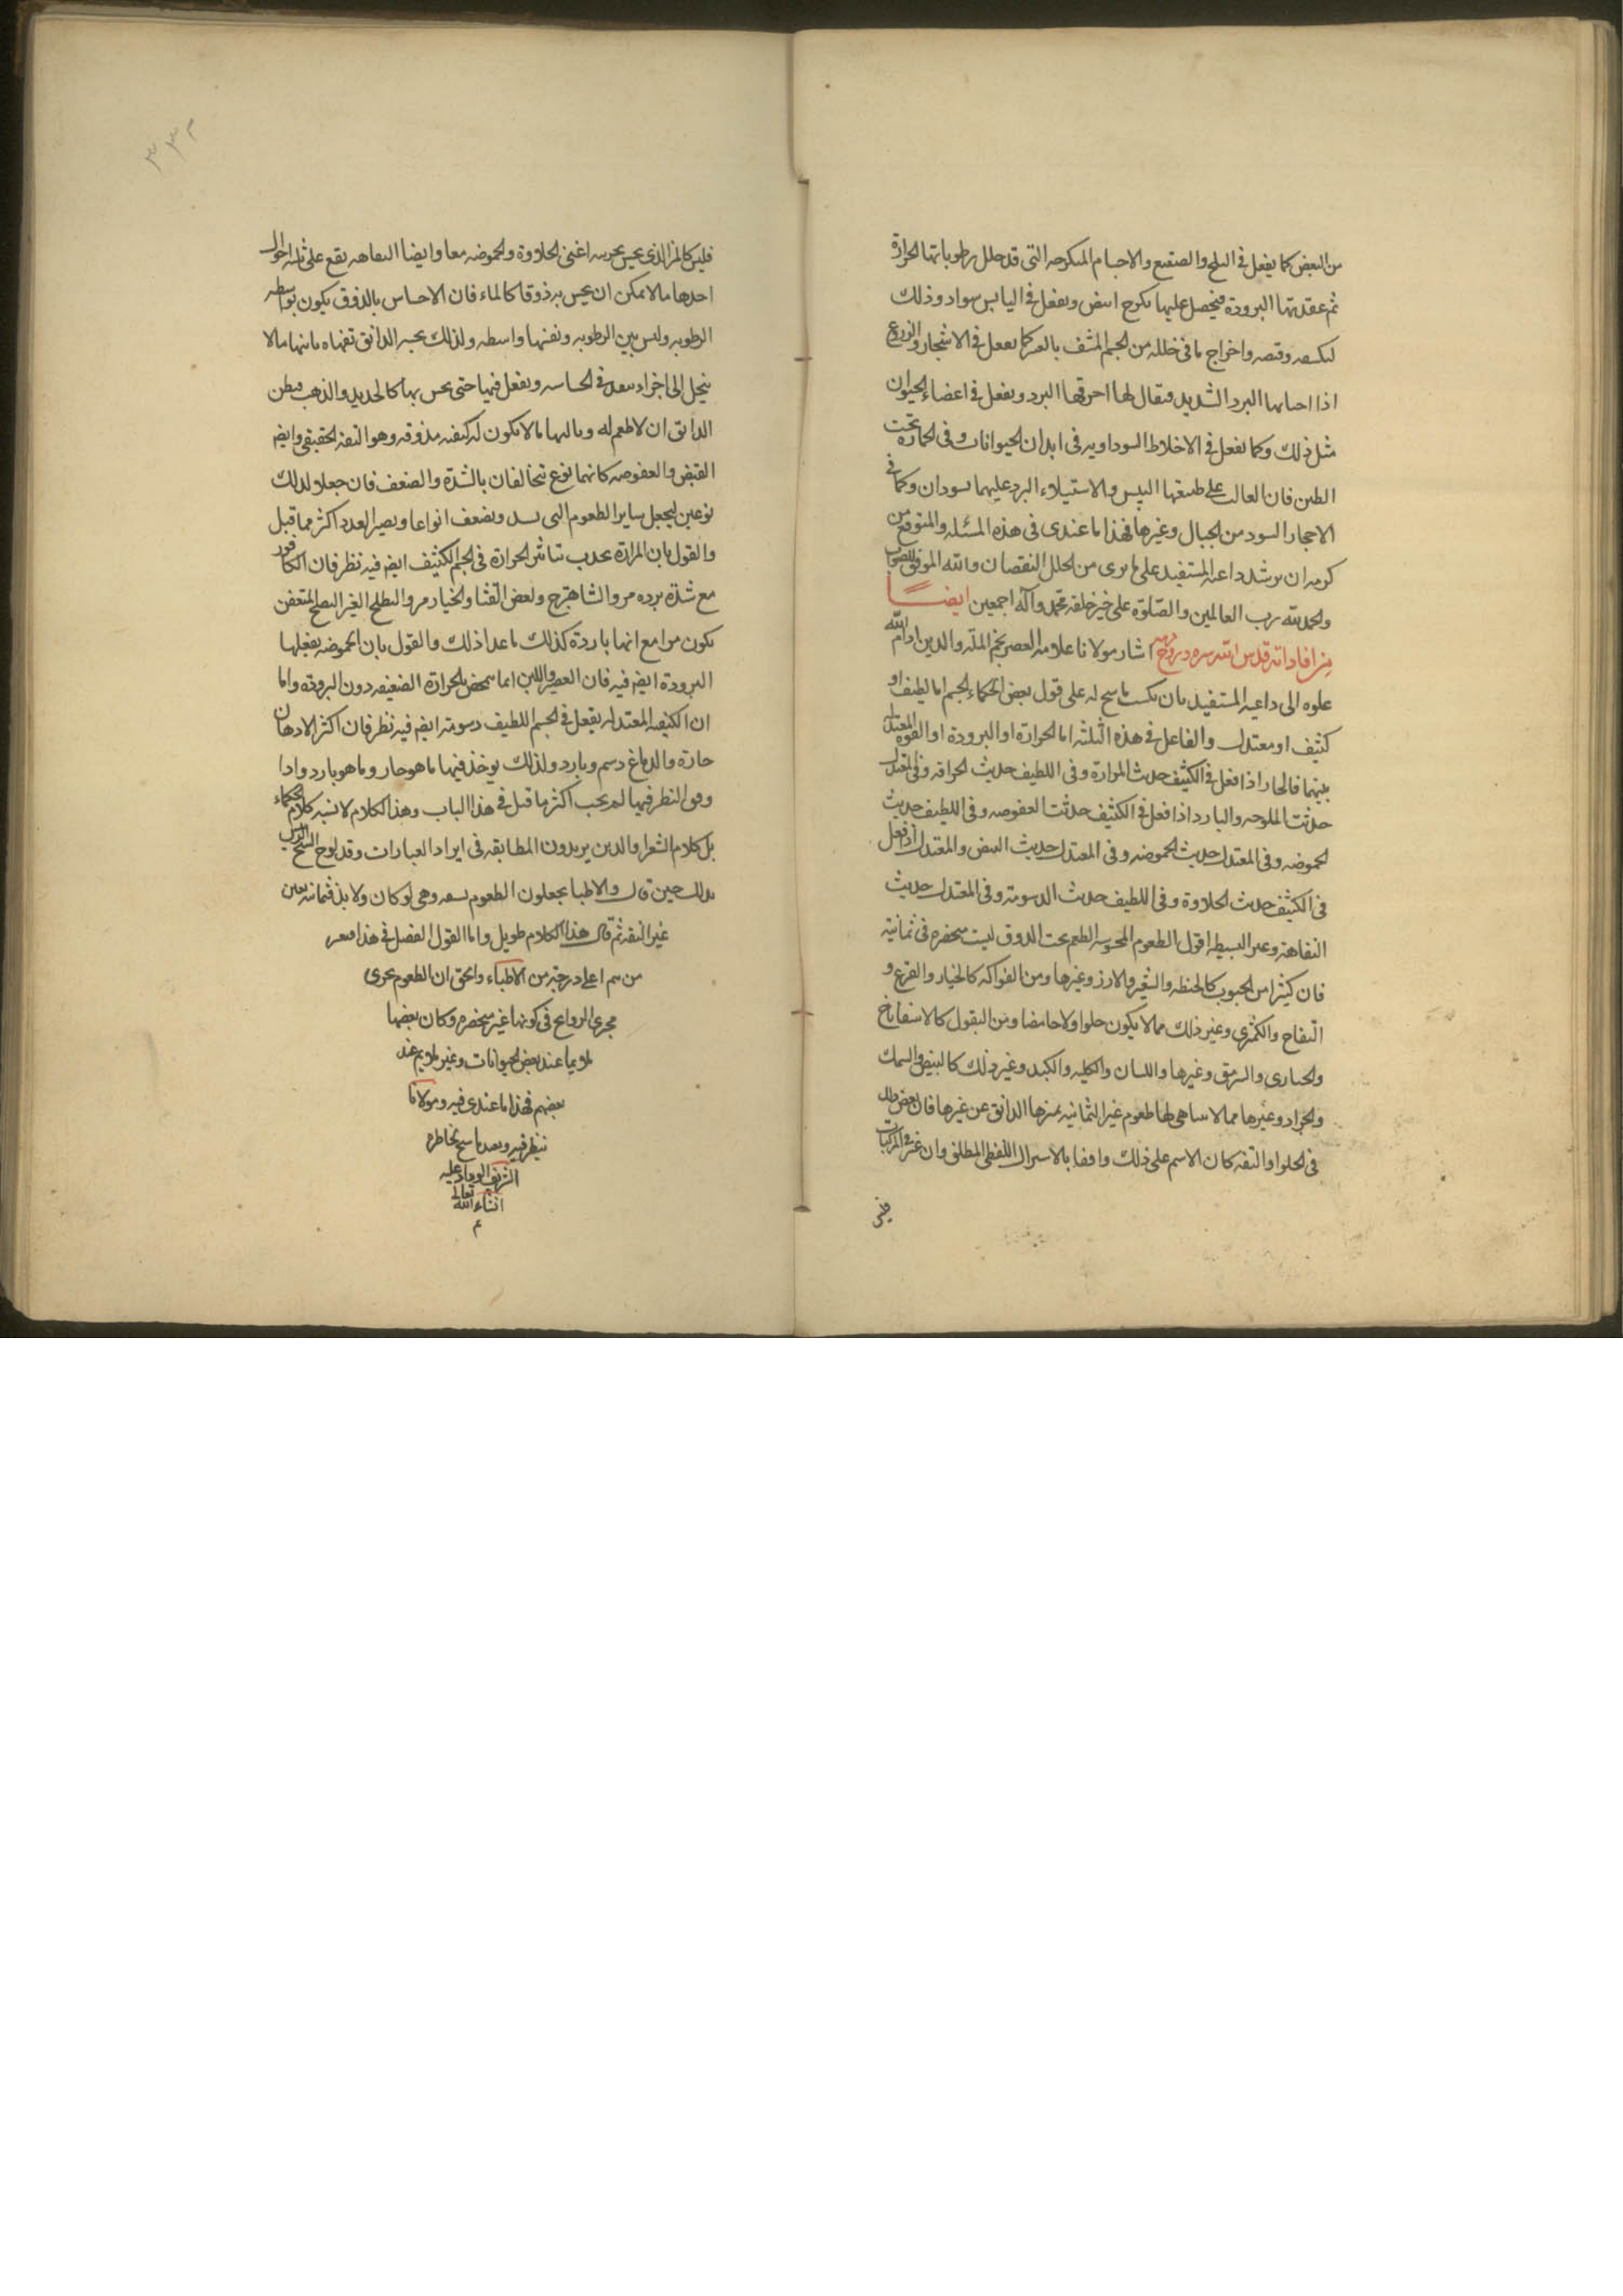 من البعض كما يفعل فى الثلج والصقيع والاجسام المتكرجه التى قد حلل رطوباتها الحرارة
ثم عقدتها البرودة فيحصل عليها تكرج ابيض ويفعل فى اليابس سواد وذلك
وقبضه واخراج ما فى خلله من الجسم المشف بالعسر كما يفعل فى الاشجار والزروع
اذا اصابها البرد الشديد فيقال لها احرقها البرد ويفعل فى اعضاء الحيوان
مثل ذلك وكما يفعل فى الاخلاط السوداويه فى ابدان الحيوانات وفى الحمارة تحت
الطين فان الغالب على طبيعتها اليبس والاستيلاء البرد عليهما يسودان وكما فى
الاحجار السود من الجبال وغيرها فهذا ما عندى فى هذه المسئله والمتوقع من
كرمه ان يرشد داعيه المستفيد على ما يرى من الخلل النقصان والله الموفق للصواب
والحمد لله رب العالمين والصلوة على خير خلقه محمد وآله اجمعين ايضا
من افاداته قدس الله سره وروح رمسه اشار مولانا علامه العصر نجم المله والدين ادام الله
علوه الى داعيه المستفيد بان يكتب ما سنح له على قول بعض الحكماء الجسم اما لطيف او
كثيف او معتدل والفاعل فى هذه الثلثه اما الحرارة او البرودة او القوه المعتدله
بينهما فالحار اذا فعل فى الكثيف حدثت المرارة وفى اللطيف حدثت الحرافه وفى المعتدل
حدثت الملوحه والبارد اذا فعل فى الكثيف حدثت العفوصه وفى اللطيف حدثت
الحموضه وفى المعتدل حديث الحموضه وفى المعتدل حديث القبض والمعتدل اذا فعل
فى الكثيف حدثت الحلاوة وفى اللطيف حدثت الدسومة وفى المعتدل حديث
التفاهة وغير البسيطه اقول الطعوم المحسوسه الطعم تحت الذوق ليست منحصره فى ثمانية
فان كثيرا من الحبوب كالحنطه والشعير والارز وغيرها ومن الفواكه كالخيار والقرع و
التفاح والكمثرى وغير ذلك مما لا يكون حلوا ولا حامضا ومن البقول كالاسفاناخ
والخبازى والسرمق وغيرها واللسان والكليه والكبد وغير ذلك كالبيض والسمك
والجراد وغيرها مما لا يتناهى لها طعوم غير الثمانيه يميزها الذائق عن غيرها فان بعض
فى الحلو او التفه كان الاسم على ذلك واقفا بالاشتراك اللفظى المطلق وان غير فى المركبات
فليس
٣٣٢
فليس كالمز الذى يحس بحرسه اعنى الحلاوة والحموضه معا وايضا التفاهه يقع على ثلثه احوال
احدها ما لا يمكن ان يحس به ذوقا كالماء فان الاحساس بالذوق يكون بواسطه
الرطوبه وليس بين الرطوبه ونفسها واسطه ولذلك يحسه الذائق تفها وثانيها ما لا
ينحل الى اجزاء تنفذ فى الحاسه ويفعل فيها حتى يحس بها كالحديد والذهب فيظن
الذائق ان لا طعم له وثالثها ما لا يكون له كيفيه مذوقه وهو التفه الحقيقى وايضا
القبض والعفوصه كانهما نوع يتخالفان بالشدة والضعف فان جعلا لذلك
نوعين ليجعل ساير الطعوم التى تشتد ويضعف انواعا ويصير العدد اكثر مما قبل
والقول بان المرارة يحدث بتاثير الحرارة فى الجسم الكثيف ايضا فيه نظر فان الكافور
مع شدة برده مر والشاهترج وبعض القثا والخيار مر والبطيخ الغير النضيج المتعفن
يكون مرا مع انها باردة كذلك ما عدا ذلك والقول بان الحموضه يفعلها
البرودة ايضا فيه فان العصير واللبن انما يحمض بالحرارة الضعيفه دون البروده واما
ان الكيفيه المعتدله يفعل فى الجسم اللطيف دسومة ايضا فيه نظر فان اكثر الادهان
حارة والدماغ دسم وبارد ولذلك يوخذ فيها ما هو حار وما هو بارد واذا
وفى النظر فيها لم يجب اكثر ما قيل فى هذا الباب وهذا الكلام لا يشبه كلام الحكماء
بل كلام الشعراء والذين يريدون المطابقه فى ايراد العبارات وقد لوح الشيخ الرئيس
بذلك حين قال والاطبا يجعلون الطعوم تسعه وهى لو كان ولا بد فثمانيه يعنى
غير التفه ثم قال هذا الكلام طويل واما القول الفصل فى هذا
من هم اعلى درجة من الاطباء والحق ان الطعوم يجرى
مجرى الروايح فى كونها غير منحصره وكان بعضها
ملايما عند بعض الحيوانات وغير ملايم عند
بعضهم فهذا ما عندى فيه ومولانا
ينظر فيه ويعد ما سنح لخاطره
الشريف
انشاء الله تعالى
م